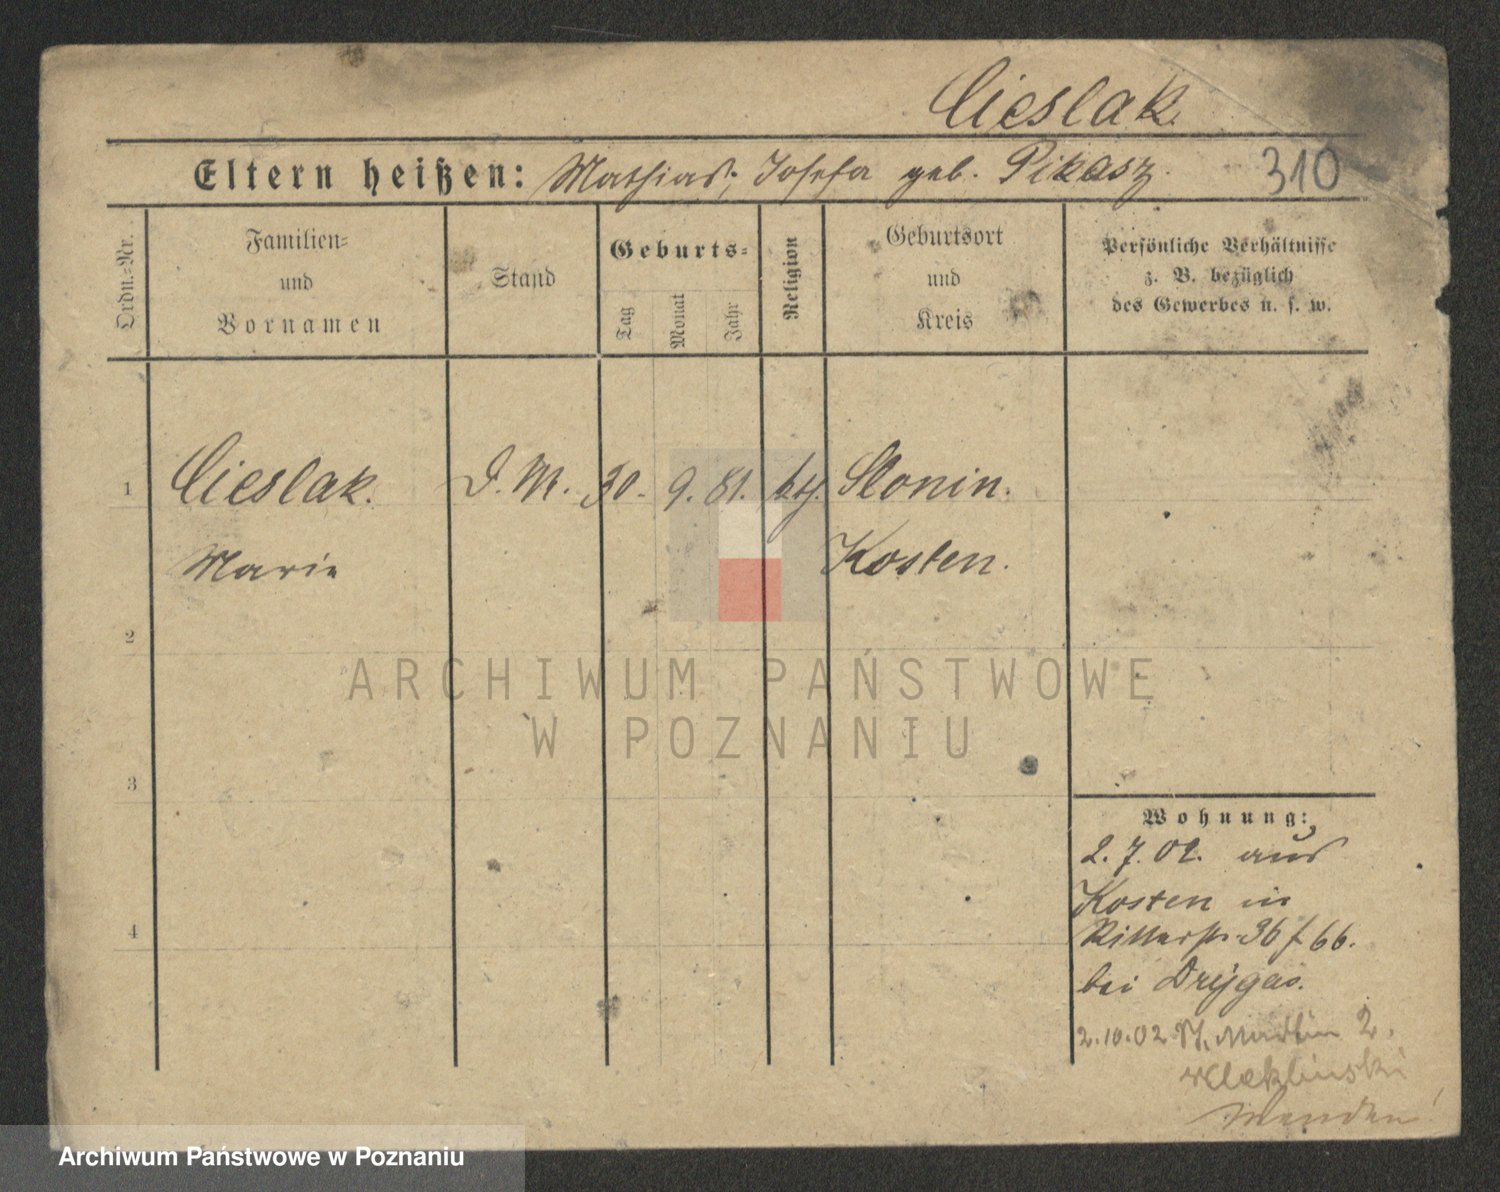 Cieslak.
Eltern heißen: Mathias, Josefa geb. Pikosz. 310
Ordn.=Nr.
Familien=
und
Vornamen
Stand
Geburts=
Tag
Monat
Jahr
Religion
Geburtsort
und
Kreis
Persönliche Verhältnisse
z. B. bezüglich
des Gewerbes u. s. w.
1 Cieslak. D. M. 30. 9. 81. ktḥ. Slonin.
Marie Kosten.
2
3
4
Wohnung:
2.7.02. aus
Kosten in
Ritterstr. 36 66.
bei Drygas.
2.10.02 St. Martin 2.
ARCHIWUM PAŃSTWOWE
W POZNANIU
Archiwum Państwowe w Poznaniu